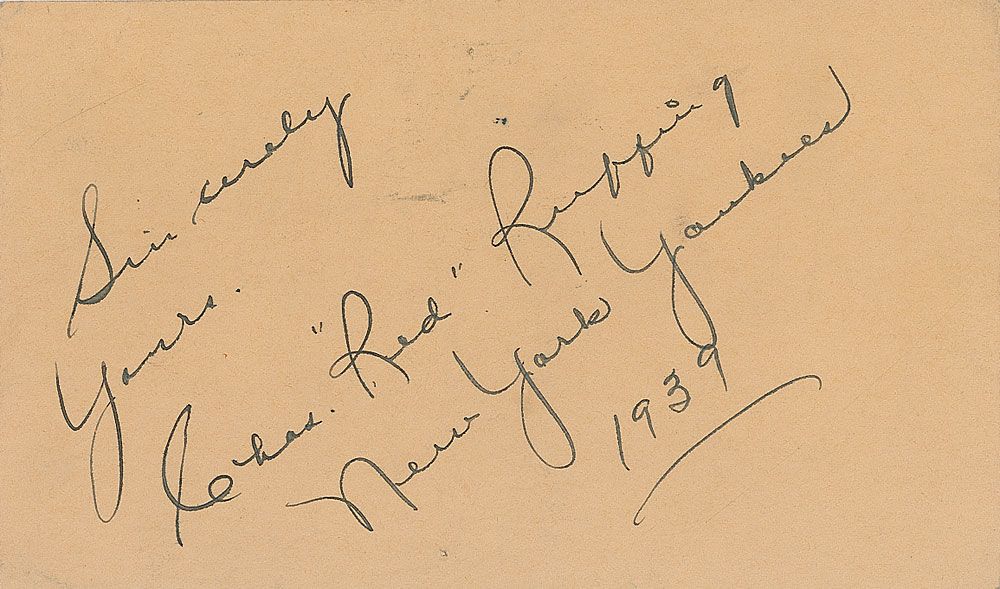 Sincerely
Yours.
Chas. "Red" Ruffing
New York Yankees
1939